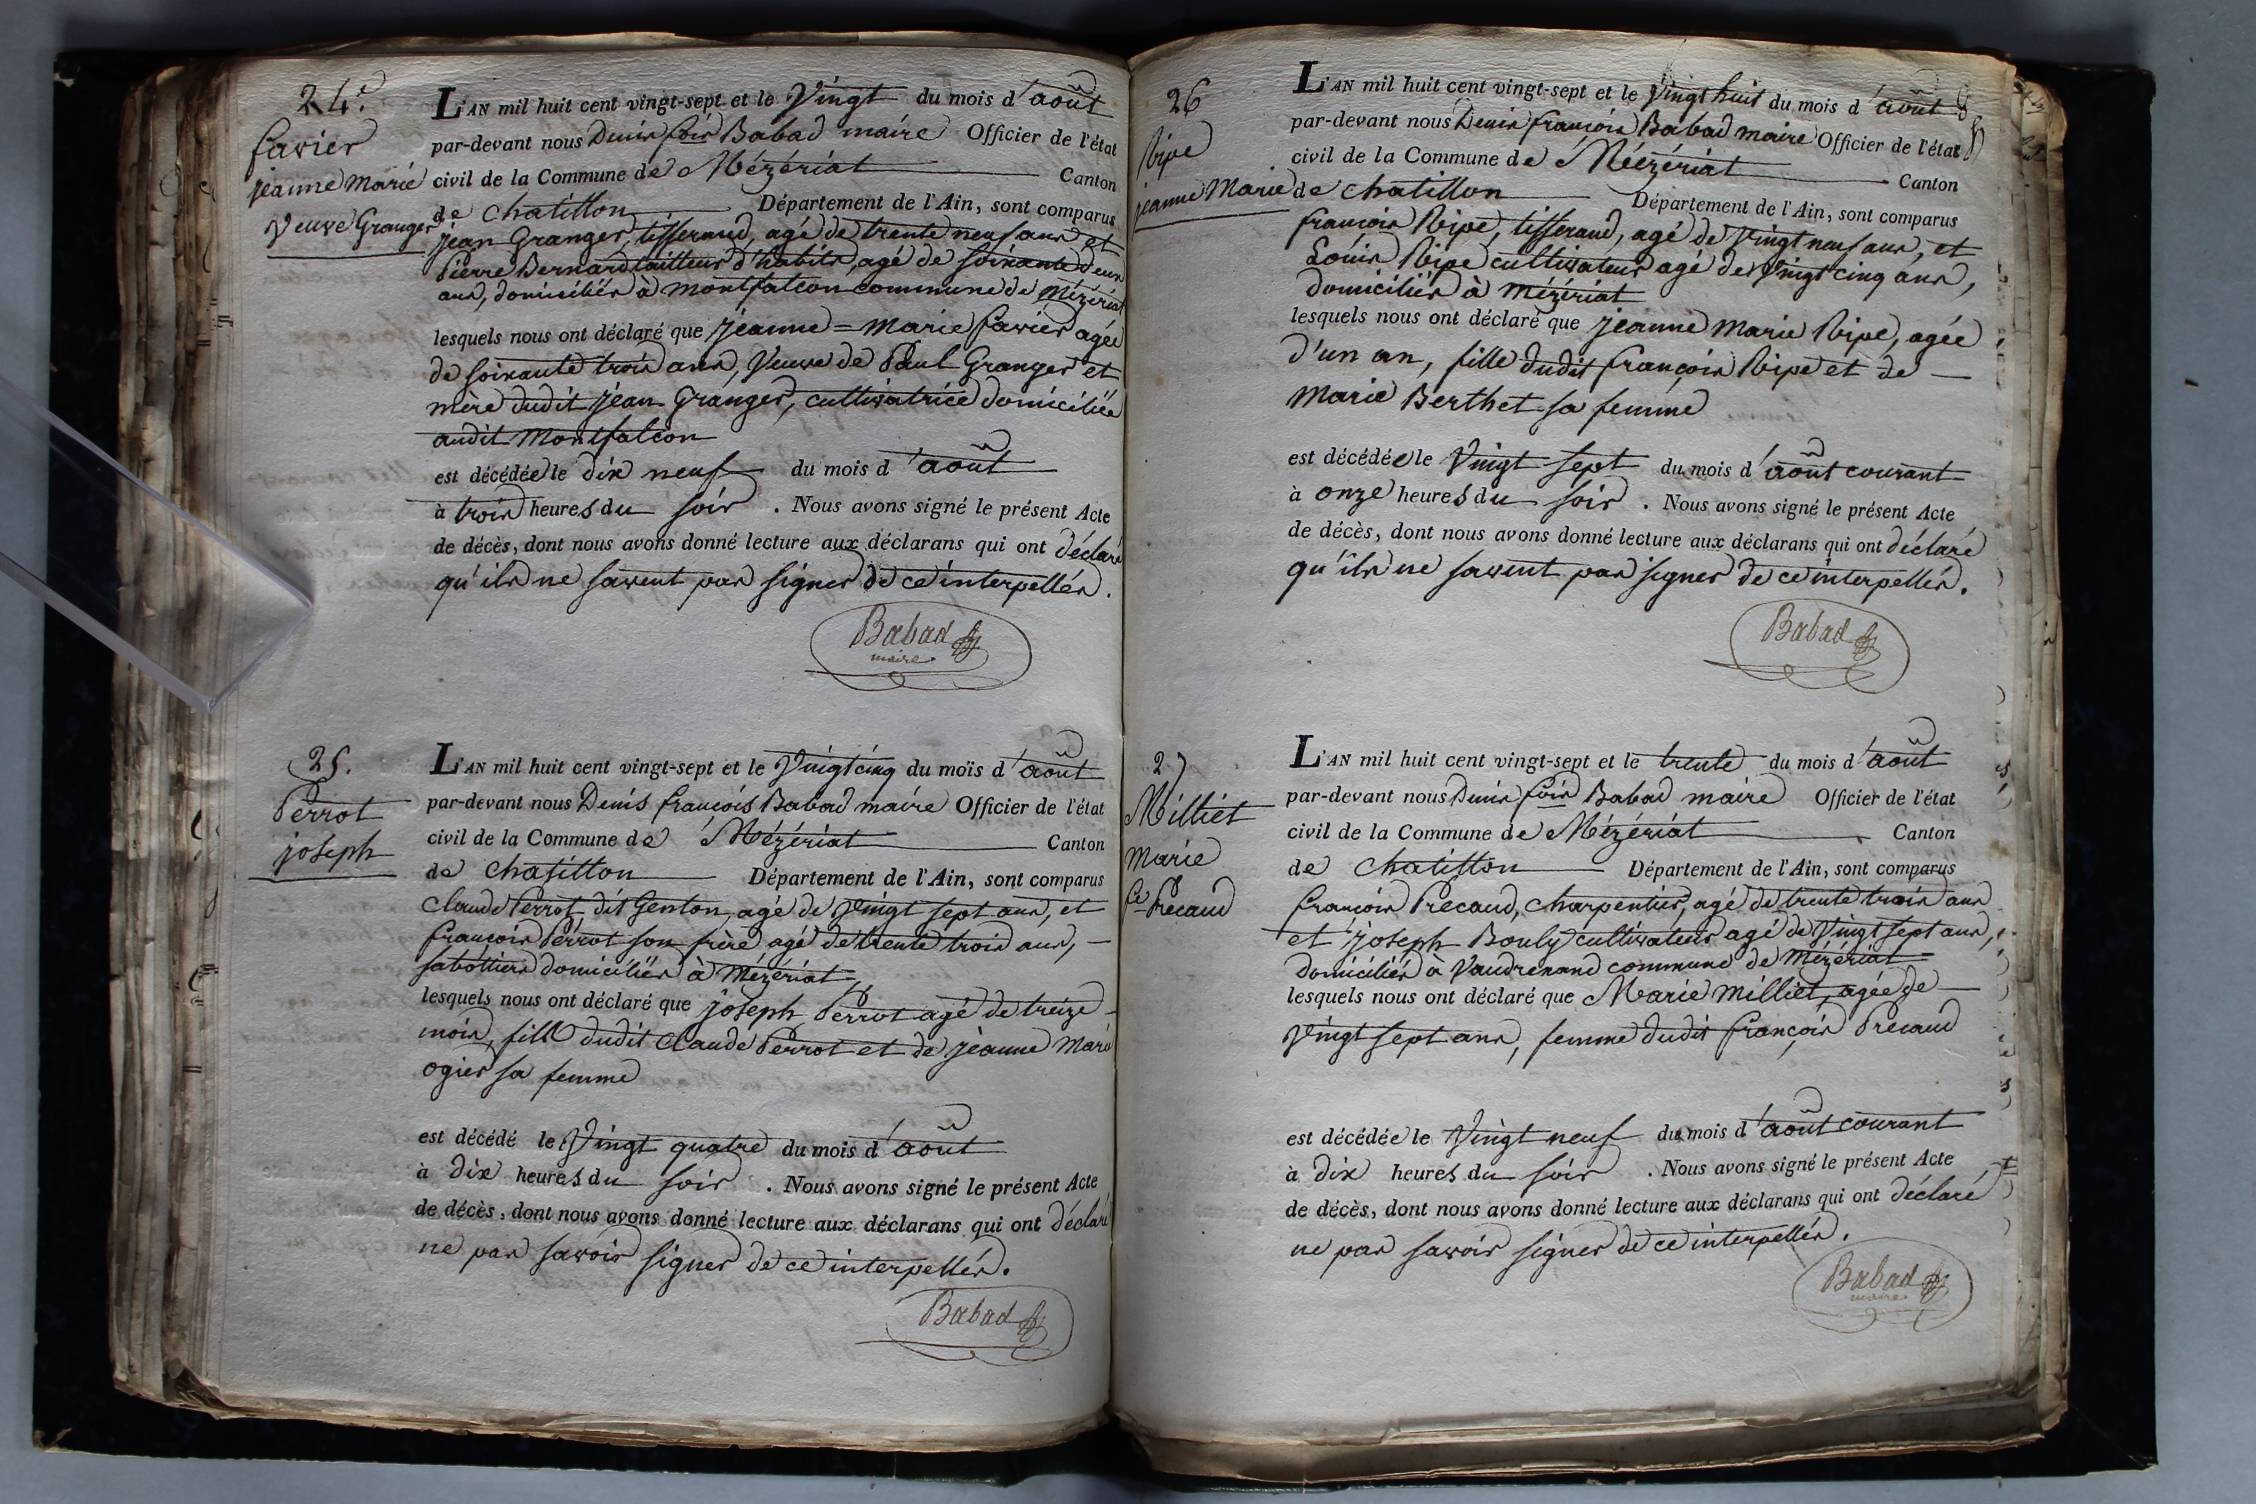 24.e
favier
jeanne Marie
Veuve Granger
L'AN mil huit cent vingt-sept et le Vingt du mois d'août
par-devant nous Denis fois Babad maire Officier de l'état
civil de la Commune de Mézériat Canton
de Chatillon Département de l'Ain, sont comparus
jean Granger, tisserand, agé de trente neuf ans et
Pierre Bernard tailleur d'habits, agé de soixante deux
ans, domiciliés à montfalcon commune de Mézériat
lesquels nous ont déclaré que jeanne=marie favier agée
de soixante trois ans, Veuve de Paul Granger et
mère dudit jean Granger, cultivatrice domiciliée
audit Montfalcon
est décédée le dix neuf du mois d'août
à trois heures du soir . Nous avons signé le présent Acte
de décès, dont nous avons donné lecture aux déclarans qui ont déclaré
qu'ils ne savent pas signer de ce interpellés.
Babad
maire
25.
Perrot
joseph
L'AN mil huit cent vingt-sept et le Vingt cinq du mois d'août
par-devant nous Denis françois Babad maire Officier de l'état
civil de la Commune de Mézériat Canton
de Chatillon Département de l'Ain, sont comparus
Claude Perrot dit Genton, agé de Vingt sept ans, et
françois Perrot son frère agé de trente trois ans,
sabottiers domiciliés à Mézériat,
lesquels nous ont déclaré que joseph Perrot agé de treize
mois, fils dudit Claude Perrot et de jeanne Marie
ogier sa femme
est décédé le Vingt quatre du mois d'août
à dix heures du soir . Nous avons signé le présent Acte
de décès, dont nous avons donné lecture aux déclarans qui ont déclaré
ne pas savoir signer de ce interpellés.
Babad
26
Ripe
jeanne Marie
L'AN mil huit cent vingt-sept et le Vingt huit du mois d'août
par-devant nous Denis françois Babad maire Officier de l'état
civil de la Commune de Mézériat Canton
de Chatillon Département de l'Ain, sont comparus
françois Ripe, tisserand, agé de Vingt neuf ans, et
Louis Ripe cultivateur agé de Vingt cinq ans,
domiciliés à Mézériat
lesquels nous ont déclaré que jeanne Marie Ripe, agée
d'un an, fille dudit françois Ripe et de
Marie Berthet sa femme
est décédée le Vingt sept du mois d'août courant
à onze heures du soir . Nous avons signé le présent Acte
de décès, dont nous avons donné lecture aux déclarans qui ont déclaré
qu'ils ne savent pas signer de ce interpellés.
Babad
27
Milliet
Marie
fe Precaud
L'AN mil huit cent vingt-sept et le trente du mois d'août
par-devant nous Denis fois Babad maire Officier de l'état
civil de la Commune de Mézériat Canton
de Chatillon Département de l'Ain, sont comparus
françois Precaud, Charpentier, agé de trente trois ans
et joseph Bouly cultivateur agé de Vingt sept ans,
domiciliés à Vaudrenand commune de Mézériat
lesquels nous ont déclaré que Marie Milliet, agée de
Vingt sept ans, femme dudit françois Precaud
est décédée le Vingt neuf du mois d'août courant
à dix heures du soir . Nous avons signé le présent Acte
de décès, dont nous avons donné lecture aux déclarans qui ont déclaré
ne pas savoir signer de ce interpellés.
Babad
maire